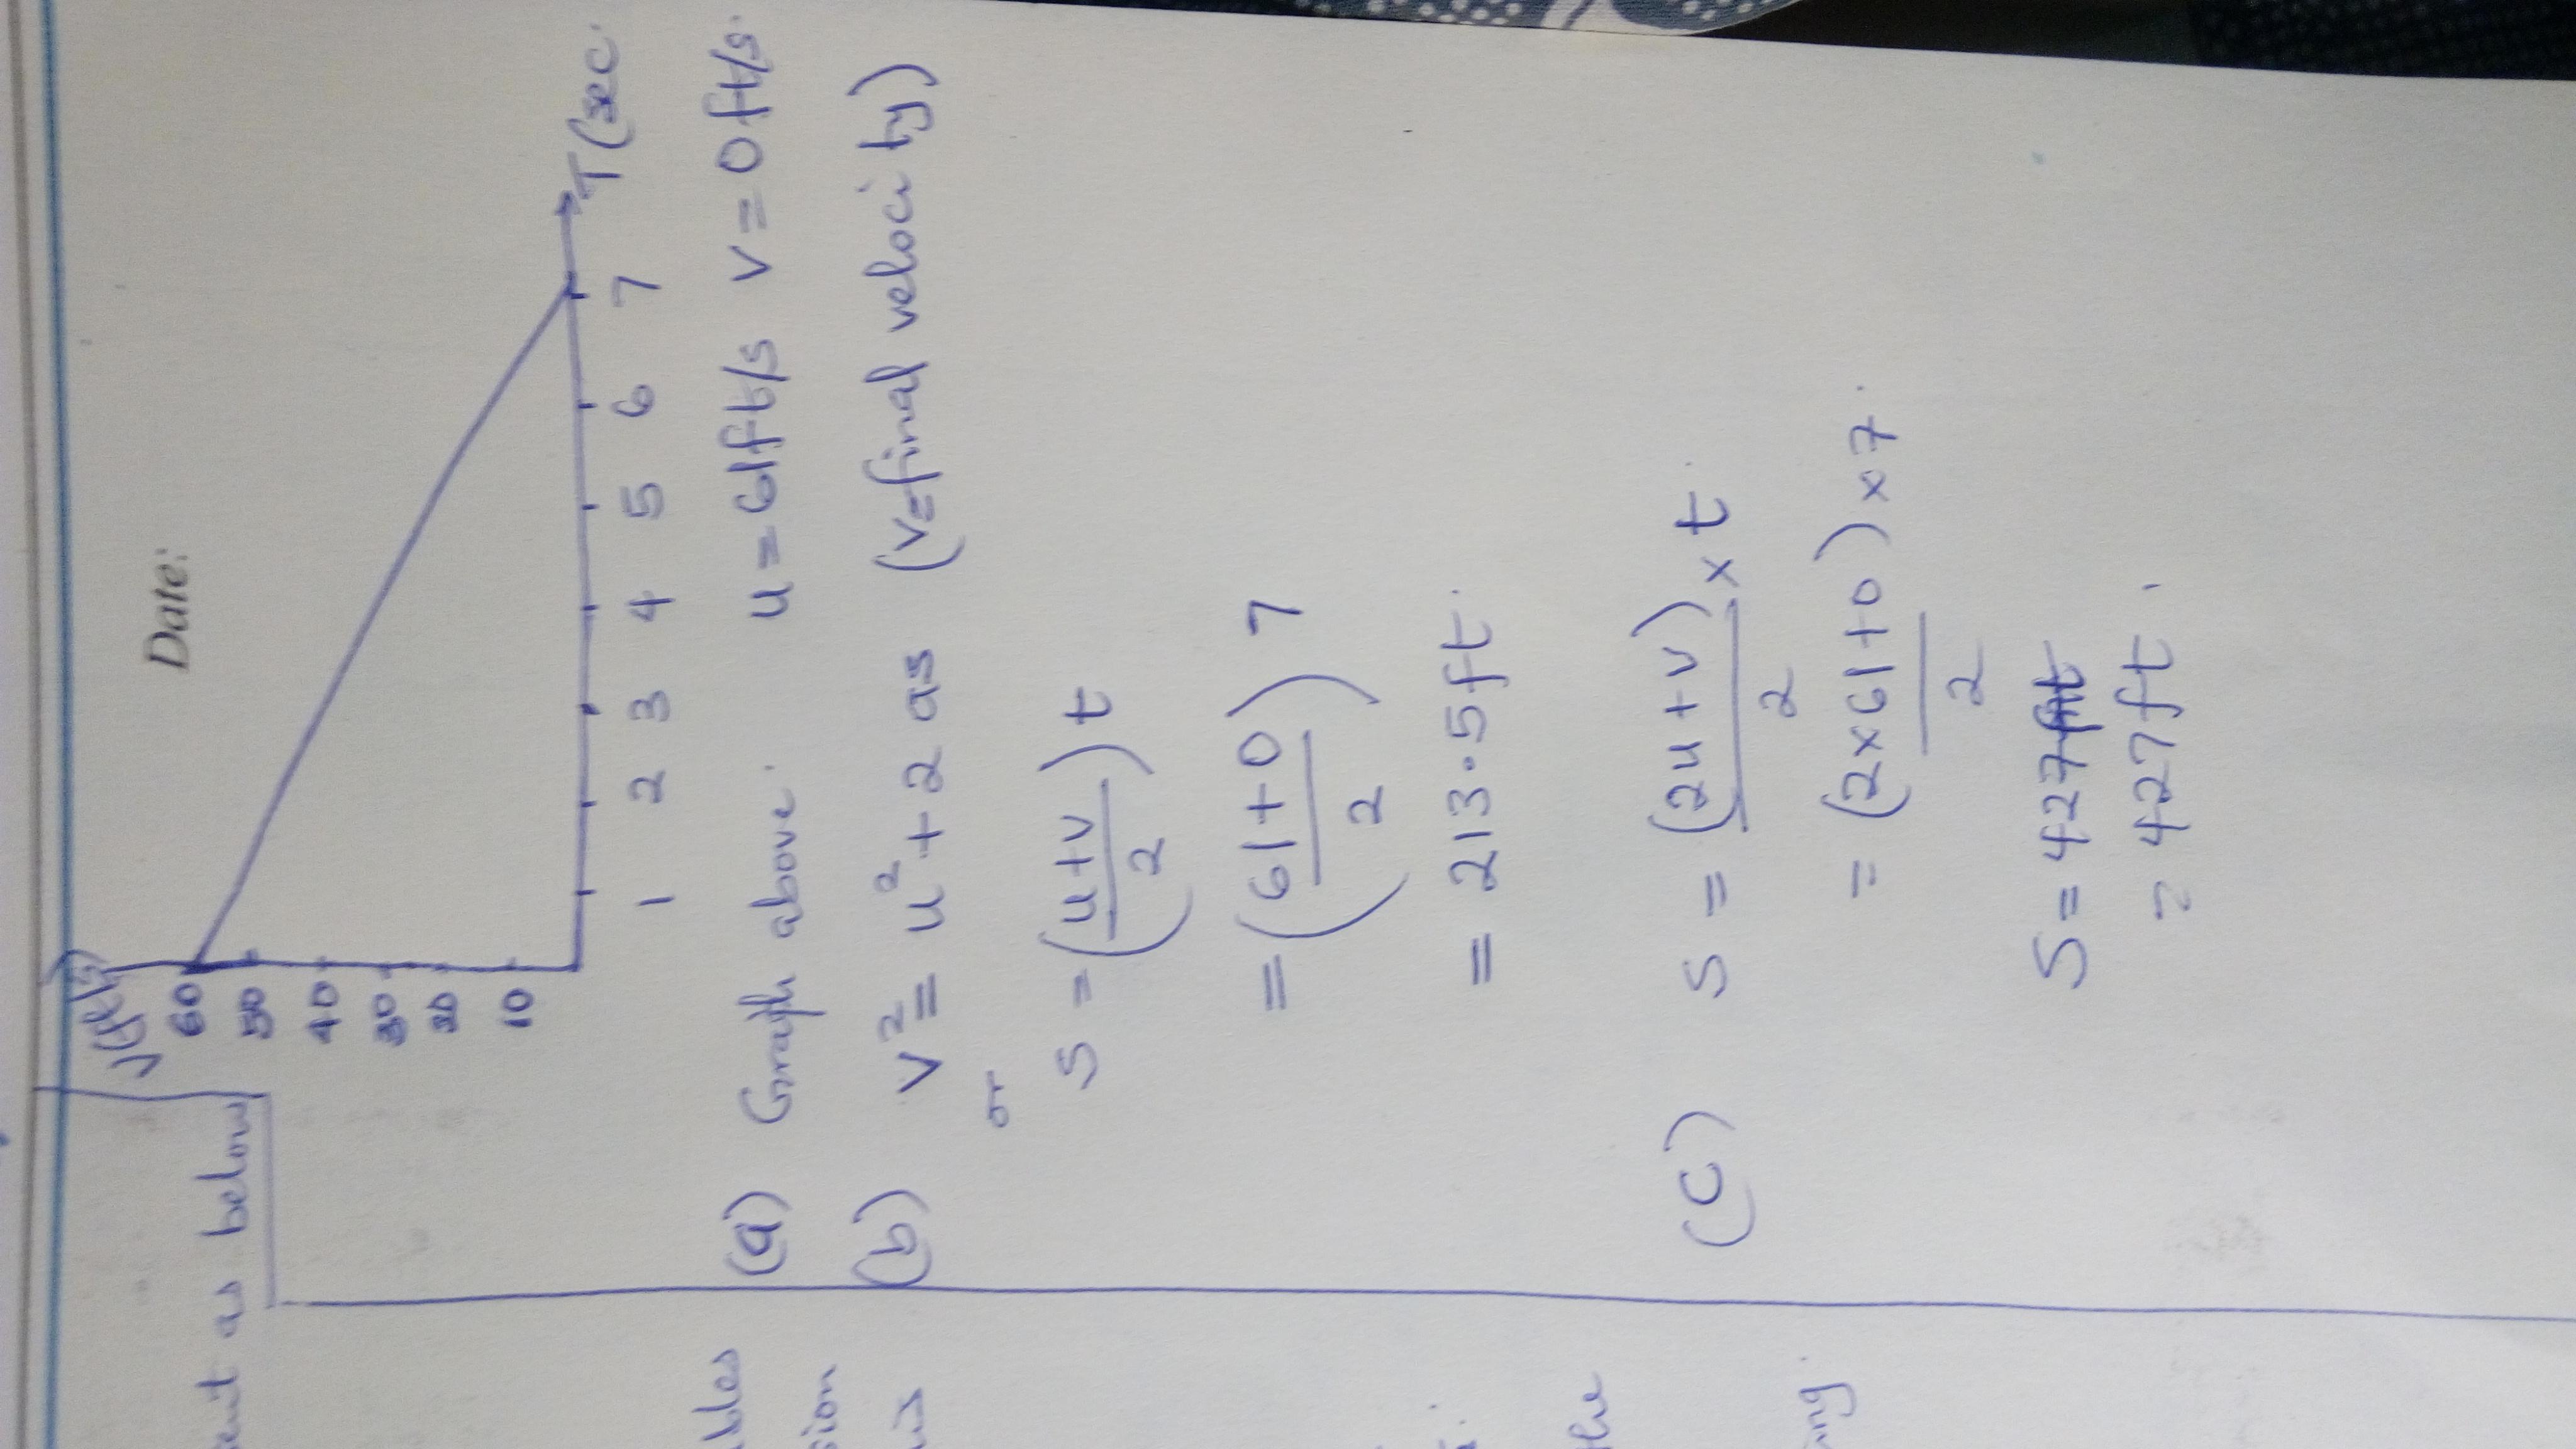 Date:
as below
V(ft/s)
60
50
40
30
20
10
1 2 3 4 5 6 7 T(sec.
(a) Graph above. u = 61ft/s v = 0ft/s.
(b) v² = u² + 2as (v=final velocity)
or
S = (u+v/2)t
= (61+0/2) 7
= 213.5ft.
(c) S = (2u+v)/2 x t.
= (2x61+0)/2 x 7.
S = 427
= 427ft.
the